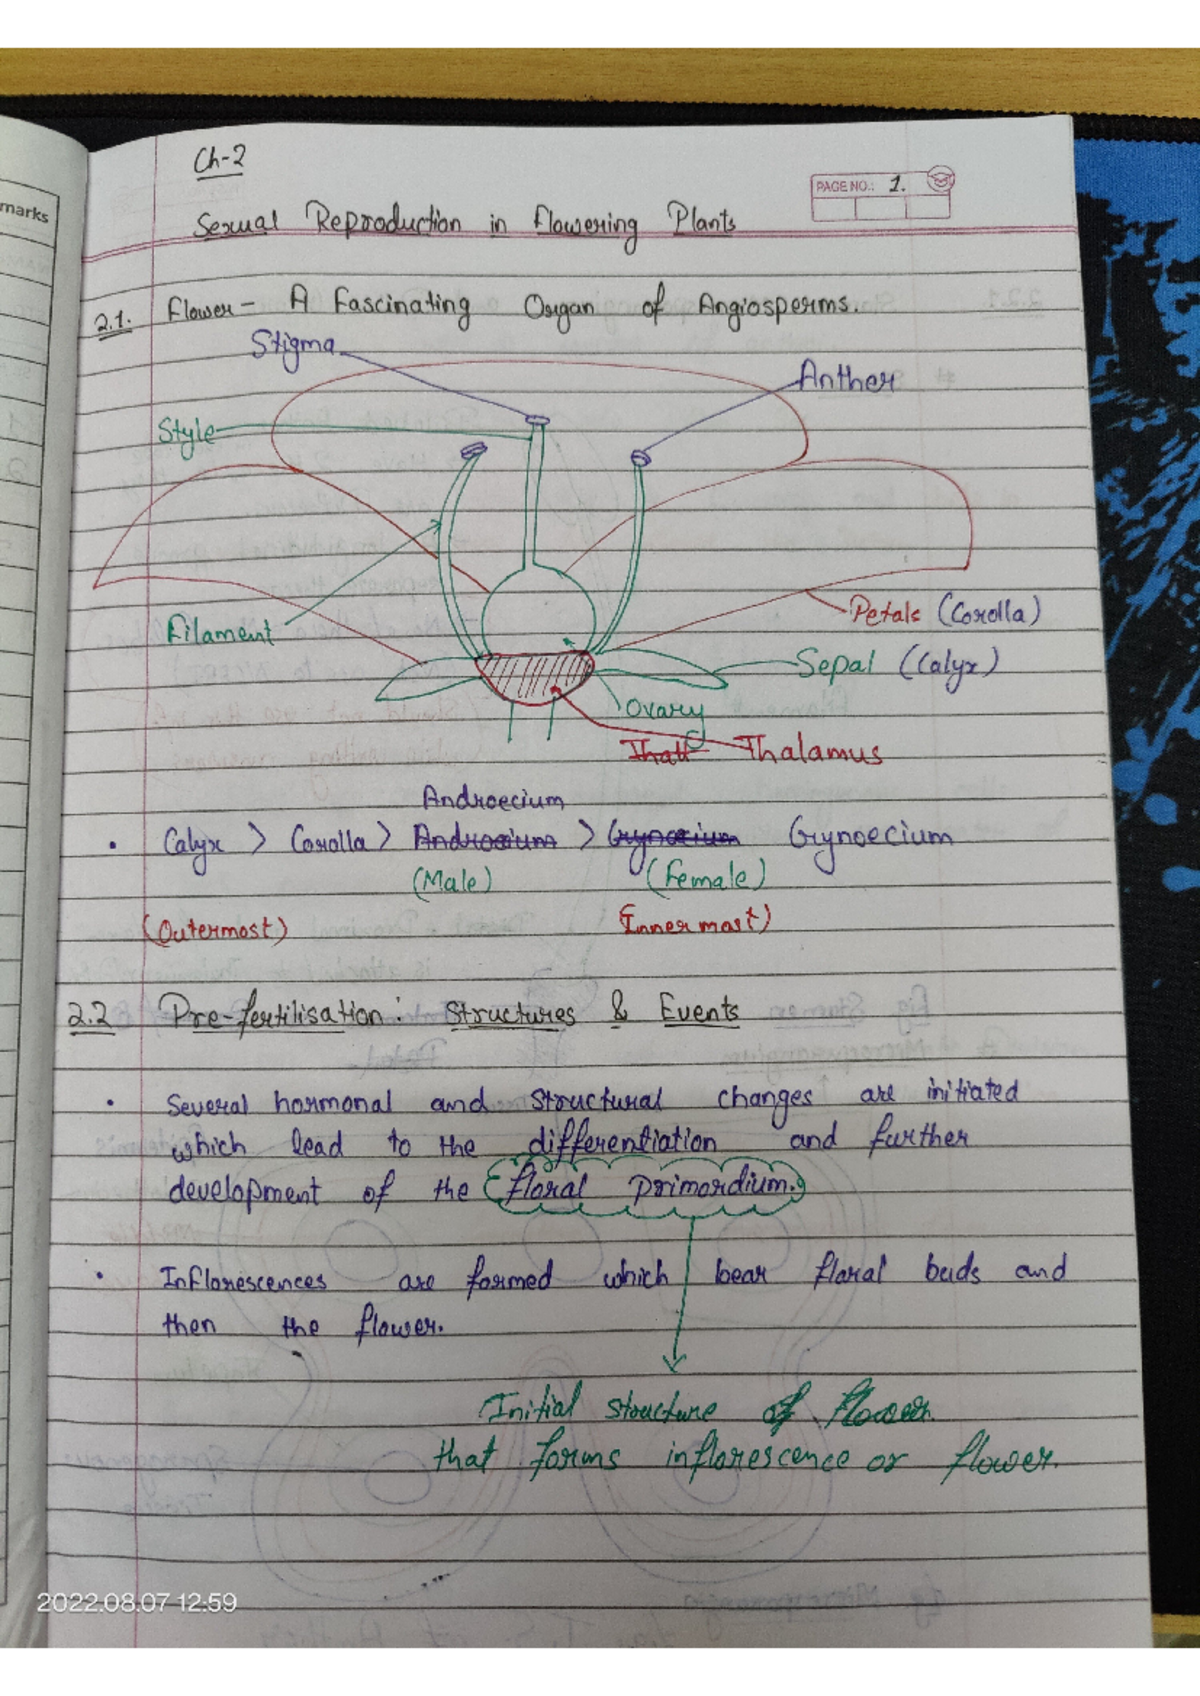 marks
Ch-2
PAGE NO.: 1.
Sexual Reproduction in Flowering Plants
2.1. Flower - A Fascinating Organ of Angiosperms.
Stigma
Anther
Style
Filament
Petals (Corolla)
Sepal (Calyx)
Ovary
Thall Thalamus
Androecium
• Calyx > Corolla > Androcium > Gynocium Gynoecium
(Male) (Female)
(Outermost) (Innermost)
2.2 Pre-fertilisation: Structures & Events
• Several hormonal and structural changes are initiated
which lead to the differentiation and further
development of the floral primordium.
• Inflorescences are formed which bear floral buds and
then the flower.
Initial structure of flower
that forms inflorescence or flower.
2022.08.07 12:59